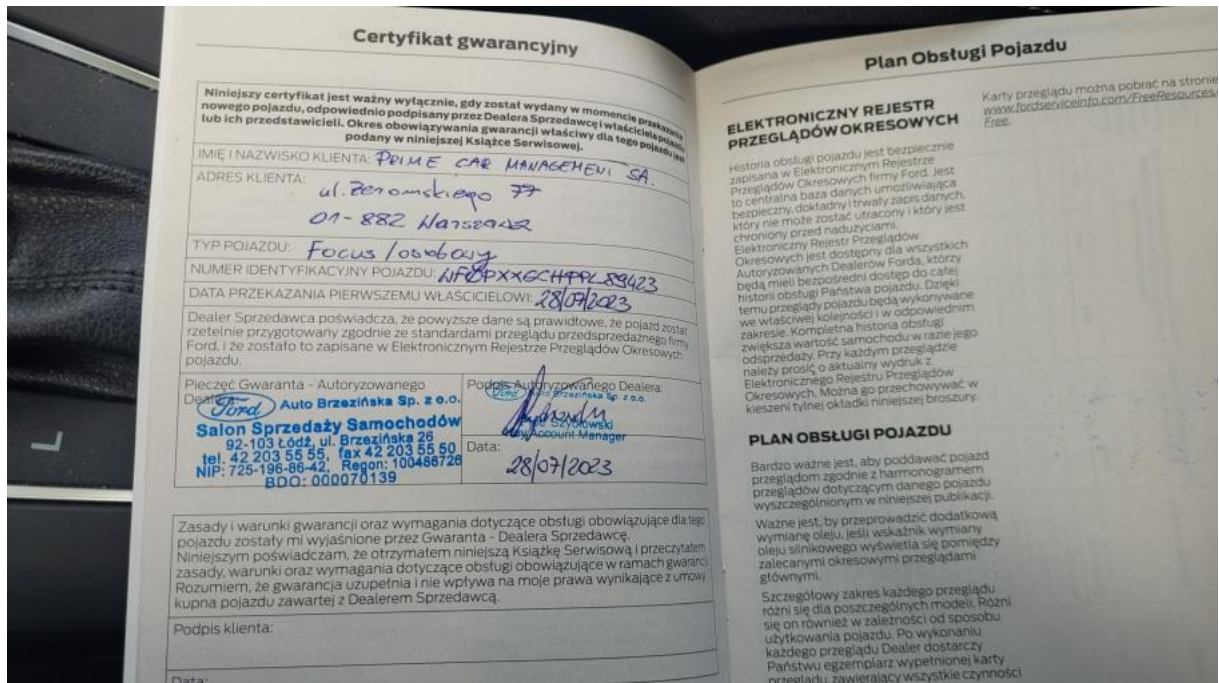 Certyfikat gwarancyjny
Niniejszy certyfikat jest ważny wyłącznie, gdy został wydany w momencie przekazania
nowego pojazdu, odpowiednio podpisany przez Dealera Sprzedawcę i właściciela pojazdu
lub ich przedstawicieli. Okres obowiązywania gwarancji właściwy dla tego pojazdu jest
podany w niniejszej Książce Serwisowej.
IMIĘ I NAZWISKO KLIENTA: PRIME CAR MANAGEMENT SA.
ADRES KLIENTA:
ul. Żeromskiego 77
01-882 Warszawa
TYP POJAZDU: Focus / osobowy
NUMER IDENTYFIKACYJNY POJAZDU: WF0PXXGCHPPL89423
DATA PRZEKAZANIA PIERWSZEMU WŁAŚCICIELOWI: 28/07/2023
Dealer Sprzedawca poświadcza, że powyższe dane są prawidłowe, że pojazd został
rzetelnie przygotowany zgodnie ze standardami przeglądu przedsprzedażnego firmy
Ford, i że zostało to zapisane w Elektronicznym Rejestrze Przeglądów Okresowych
pojazdu.
Pieczęć Gwaranta - Autoryzowanego
Dealera:
Ford Auto Brzezińska Sp. z o.o.
Salon Sprzedaży Samochodów
92-103 Łódź, ul. Brzezińska 26
tel. 42 203 55 55, fax 42 203 55 50
NIP: 725-196-86-42, Regon: 100486728
BDO: 000070139
Podpis Autoryzowanego Dealera:
Ford Auto Brzezińska Sp. z o.o.
Szydłowski
Key Account Manager
Data:
28/07/2023
Zasady i warunki gwarancji oraz wymagania dotyczące obsługi obowiązujące dla tego
pojazdu zostały mi wyjaśnione przez Gwaranta - Dealera Sprzedawcę.
Niniejszym poświadczam, że otrzymałem niniejszą Książkę Serwisową i przeczytałem
zasady, warunki oraz wymagania dotyczące obsługi obowiązujące w ramach gwarancji
Rozumiem, że gwarancja uzupełnia i nie wpływa na moje prawa wynikające z umowy
kupna pojazdu zawartej z Dealerem Sprzedawcą.
Podpis klienta:
Data:
Plan Obsługi Pojazdu
ELEKTRONICZNY REJESTR
PRZEGLĄDÓW OKRESOWYCH
Historia obsługi pojazdu jest bezpiecznie
zapisana w Elektronicznym Rejestrze
Przeglądów Okresowych firmy Ford. Jest
to centralna baza danych umożliwiająca
bezpieczny, dokładny i trwały zapis danych,
który nie może zostać utracony i który jest
chroniony przed nadużyciami.
Elektroniczny Rejestr Przeglądów
Okresowych jest dostępny dla wszystkich
Autoryzowanych Dealerów Forda, którzy
będą mieli bezpośredni dostęp do całej
historii obsługi Państwa pojazdu. Dzięki
temu przeglądy pojazdu będą wykonywane
we właściwej kolejności i w odpowiednim
zakresie. Kompletna historia obsługi
zwiększa wartość samochodu w razie jego
odsprzedaży. Przy każdym przeglądzie
należy prosić o aktualny wydruk z
Elektronicznego Rejestru Przeglądów
Okresowych. Można go przechowywać w
kieszeni tylnej okładki niniejszej broszury.
PLAN OBSŁUGI POJAZDU
Bardzo ważne jest, aby poddawać pojazd
przeglądom zgodnie z harmonogramem
przeglądów dotyczącym danego pojazdu
wyszczególnionym w niniejszej publikacji.
Ważne jest, by przeprowadzić dodatkową
wymianę oleju, jeśli wskaźnik wymiany
oleju silnikowego wyświetla się pomiędzy
zalecanymi okresowymi przeglądami
głównymi.
Szczegółowy zakres każdego przeglądu
różni się dla poszczególnych modeli. Różni
się on również w zależności od sposobu
użytkowania pojazdu. Po wykonaniu
każdego przeglądu Dealer dostarczy
Państwu egzemplarz wypełnionej karty
przeglądu, zawierający wszystkie czynności
Karty przeglądu można pobrać na stronie
www.fordserviceinfo.com/FreeResources/
Free.